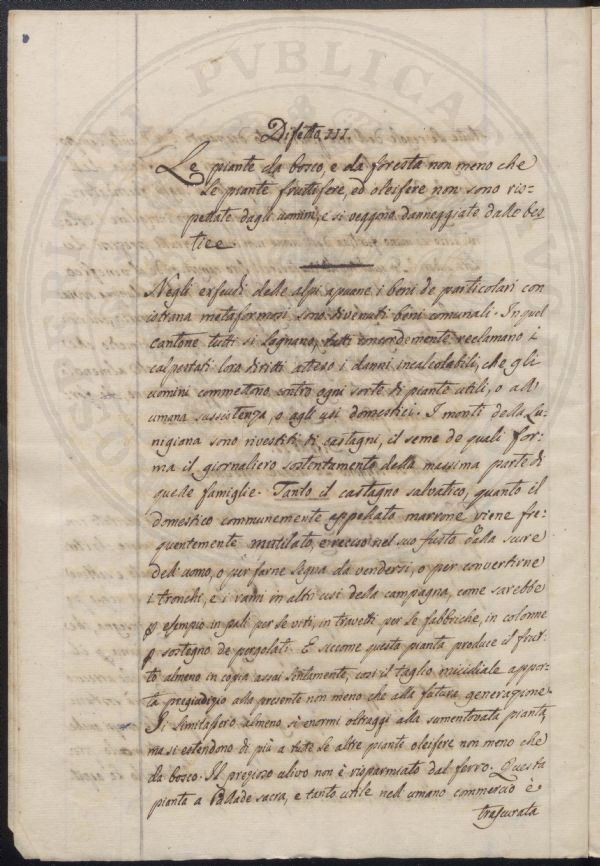 Difetto III.
Le piante da bosco, e da foresta non meno che
le piante fruttifere, ed oleifere non sono ris-
pettate dagli uomini, e si veggono danneggiate dalle bes-
tiee
Negli exfeudi delle alpi apuane i beni de particolari con
istrana metaformosi sono divenuti beni comunali. In quel
cantone tutti si lagnano, tutti concordemente reclamano i
calpestati loro diritti atteso i danni incalcolabili, che gli
uomini commettono contro ogni sorte di piante utili, o all'
umana sussistenza, o agli usi domestici. I monti della Lu-
nigiana sono rivestiti di castagni, il seme de quali for-
ma il giornaliero sostentamento della massima parte di
quelle famiglie. Tanto il castagno salvatico, quanto il
domestico communemente appellato marrone viene fre-
quentemente mutilato, e reciso nel suo fusto dalla scure
dell'uomo, o per farne legna da vendersi, o per convertirne
i tronchi, e i rami in altri usi della campagna, come sarebbe
p esempio in pali per le viti, in travetti per le fabbriche, in colonne
p sostegno de pergolati. E siccome questa pianta produce il frut-
to almeno in copia assai lentamente, così il taglio micidiale appor-
ta pregiudizio alla presente non meno che alla futura generazione.
Si limitassero almeno sì enormi oltraggi alla sumentovata pianta,
ma si estendono di più a tutte le altre piante oleifere non meno che
da bosco. Il prezioso ulivo non è risparmiato dal ferro. Questa
pianta a Pallade sacra, e tanto utile nell umano commercio è
trascurata
PVBLICAE